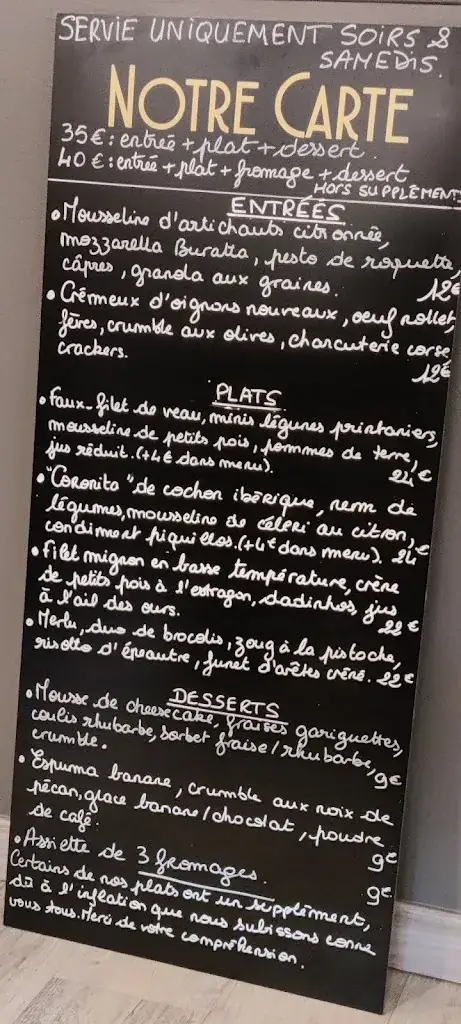 SERVIE UNIQUEMENT SOIRS &
SAMEDIS.
NOTRE CARTE
35€: entrée + plat + dessert.
40€: entrée + plat + fromage + dessert
HORS SUPPLÉMENTS
ENTRÉES
• Mousseline d'artichauts citronnée,
mozzarella Buratta, pesto de roquette,
câpres, granola aux graines. 12€
• Crémeux d'oignons nouveaux, oeuf mollet,
fèves, crumble aux olives, charcuterie corse,
crackers. 12€
PLATS
• Faux-filet de veau, minis légumes printaniers,
mousseline de petits pois, pommes de terre,
jus réduit. (+4€ dans menu). 24€
• "Coronita" de cochon ibérique, nem de
légumes, mousseline de céleri au citron,
condiment piquillos. (+4€ dans menu). 24€
• Filet mignon en basse température, crème
de petits pois à l'estragon, dadinhos, jus
à l'ail des ours. 22€
• Merlu, duo de brocolis, zoug à la pistache,
risotto d'épeautre, fumet d'arêtes crémé. 22€
DESSERTS
• Mousse de cheesecake, fraises gariguettes,
coulis rhubarbe, sorbet fraise/rhubarbe,
crumble. 9€
• Espuma banane, crumble aux noix de
pécan, glace banane/chocolat, poudre
de café. 9€
• Assiette de 3 fromages. 9€
Certains de nos plats ont un supplément,
dû à l'inflation que nous subissons comme
vous tous. Merci de votre compréhension.